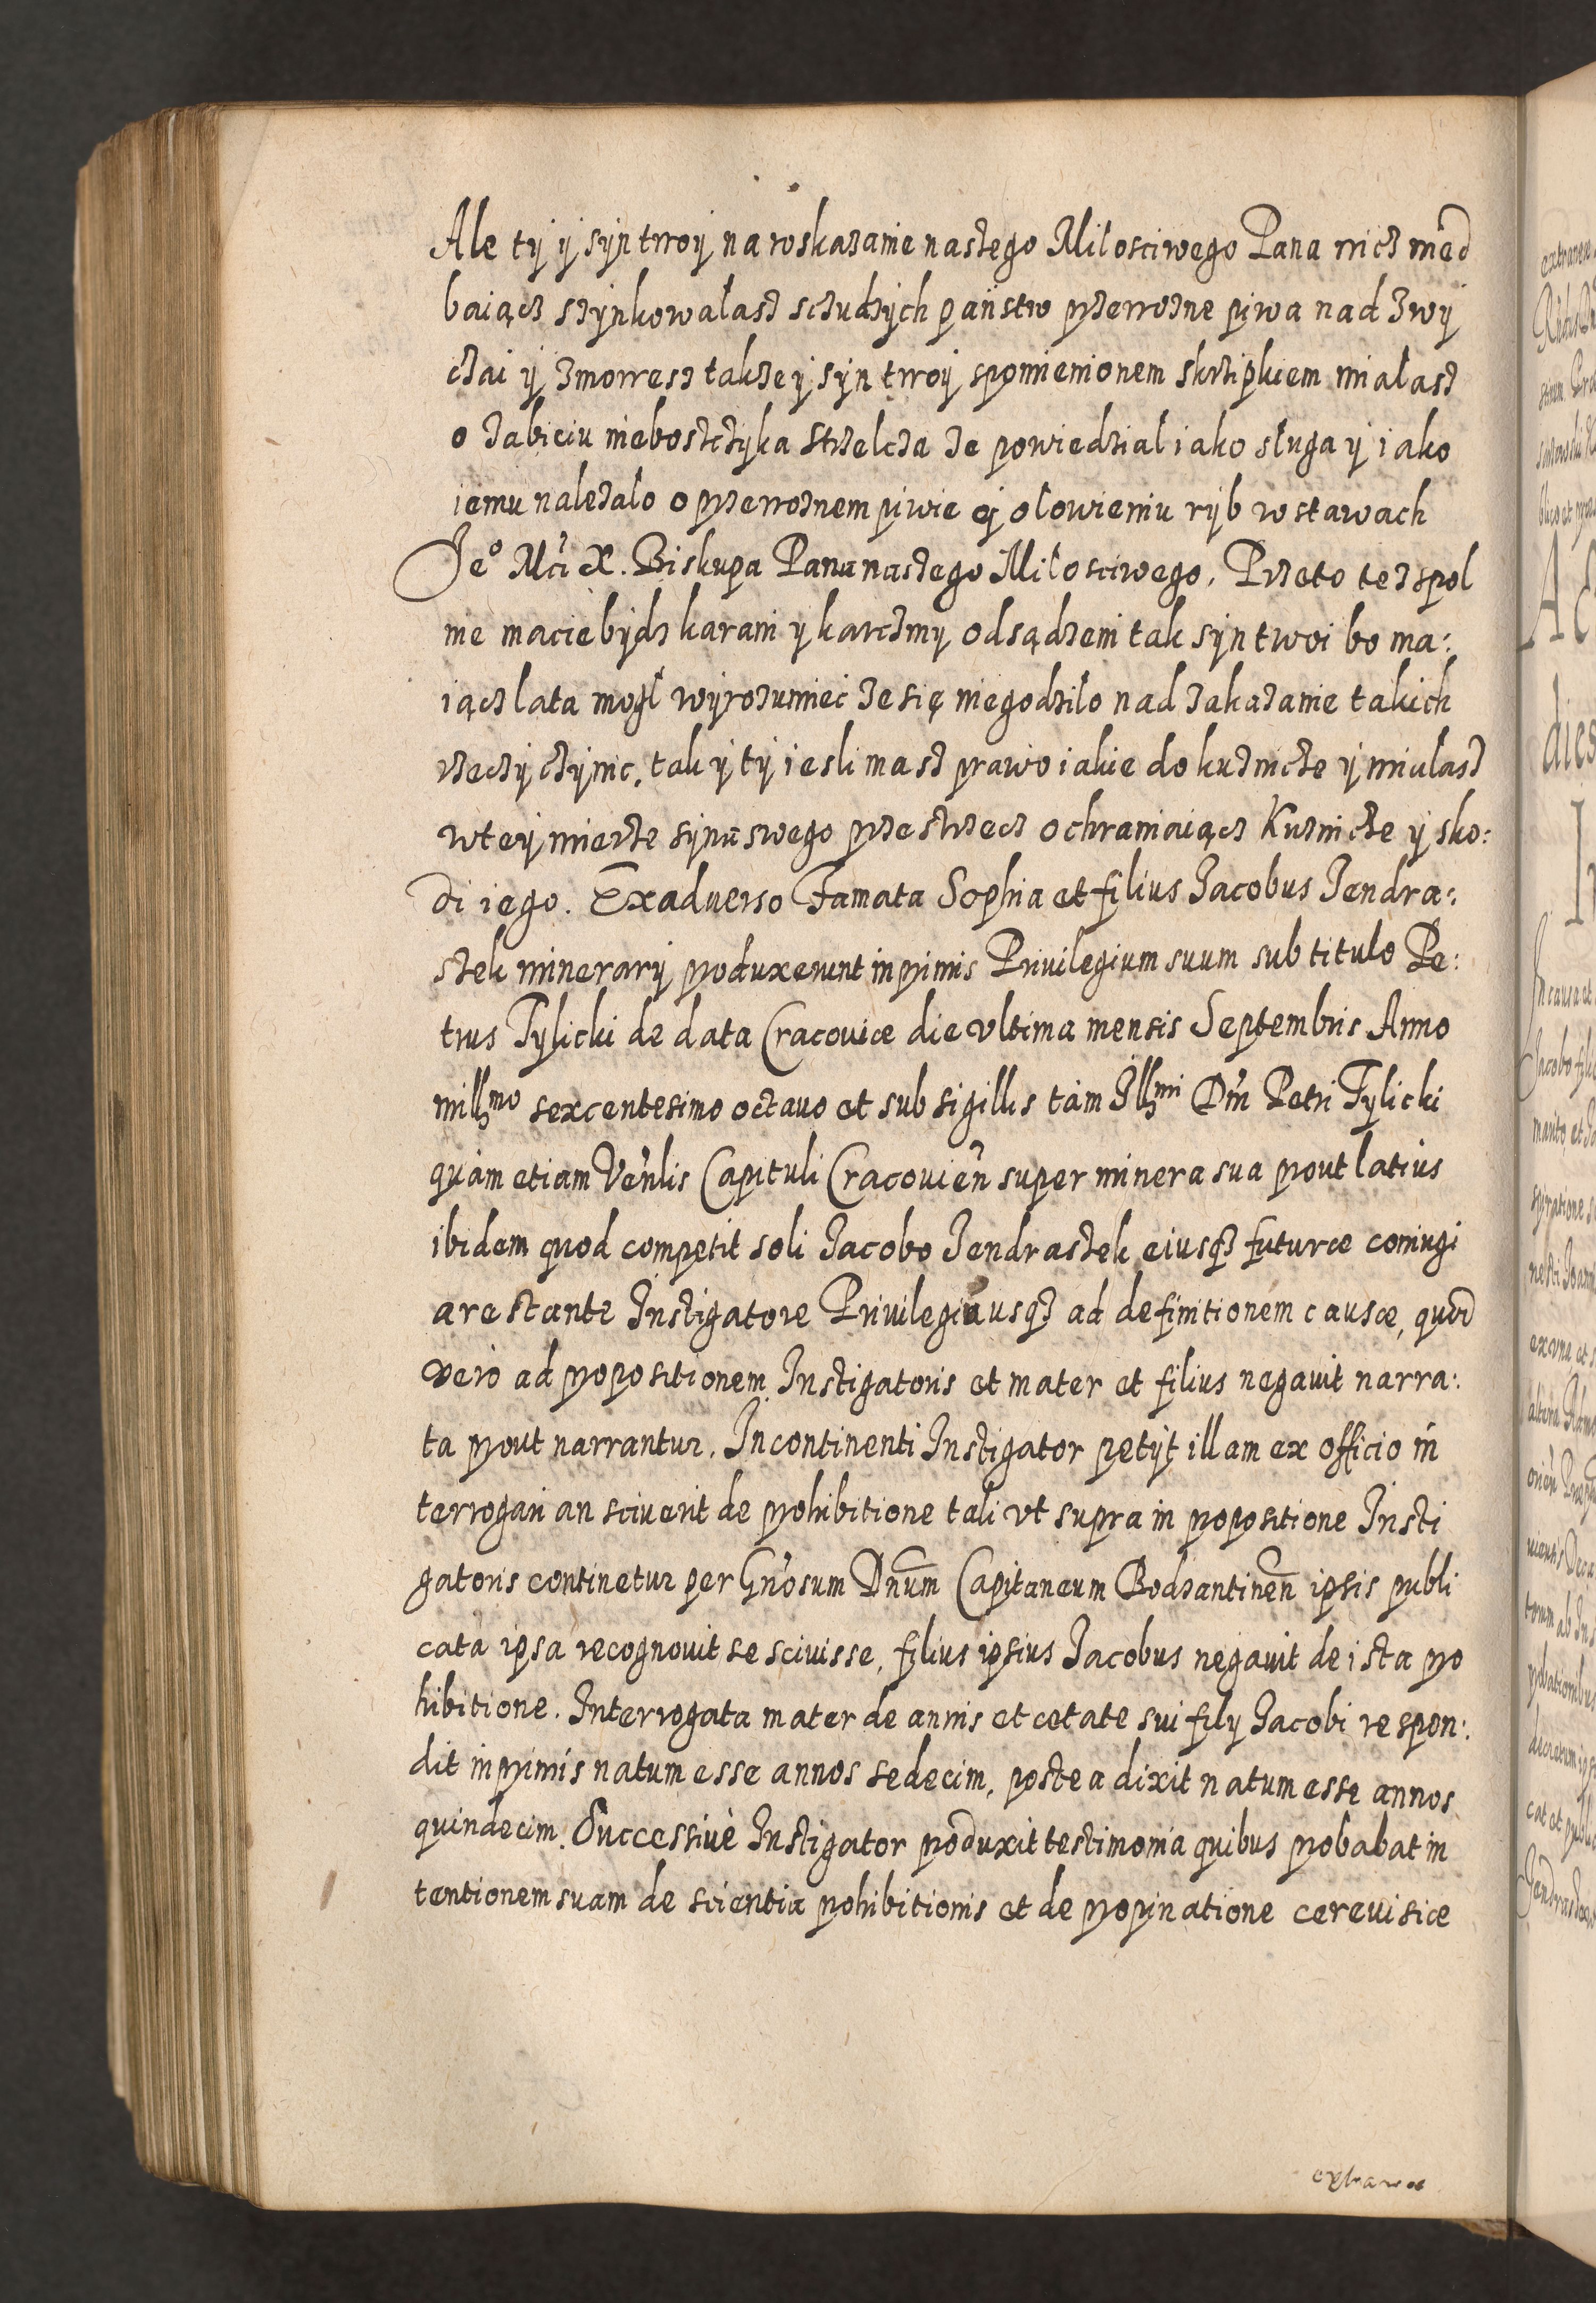 Ale ty y syn twoy na roskazanie naszego Miłosciwego Pana nicz nied
baiącz szynkowałasz scżudzych państw przewozne piwa nad zwy
czai y zmowesz także y syn twoy spomienionem skrzipkiem miałasz
o zabiciu nieboszczyka strzelcza ze powiedział iako sługa y iako
iemu należało o przewoznem piwie ej ołowieniu ryb w stawach
Jeº Mći X. Biskupa Pana naszego Miłosciwego. Przeto też spol
nie macie bydz karani y karczmy odsądzeni tak syn twoi bo ma:
iącz lata mogł wyrozumieć że się niegodziło nad zakazanie takich
rzeczy czynic, tak y ty iesli masz prawo iakie do kuznicze y miałasz
w tey mierze synu swego przestrzecz ochraniaiącz Kuznicze y sko:
di iego. Ex aduerso Famata Sophia et filius Jacobus Jendra:
szek minerarij produxerunt in primis Priuilegium suum sub titulo Pe:
trus Tylicki de data Cracouiæ die vltima mensis Septembris Anno
millmo sexcentesimo octauo et sub sigillis tàm Illmi Dni Petri Tylicki
quàm etiam Venlis Capituli Cracouien super minera sua prout latius
ibidem quod competit soli Jacobo Jendraszek eiusqz futuræ coniugi
arestante Instigatore Priuilegia usqz ad definitionem causæ, quod
verò ad propositionem Instigatoris et mater et filius negauit narra:
ta prout narrantur. In continenti Instigator petijt illam ex officio in
terrogari an sciuerit de prohibitione tali vt supra in propositione Insti
gatoris continetur per Gnosum Dnum Capitaneum Bodzantinen ipsis publi
cata ipsa recognouit se sciuisse, filius ipsius Jacobus negauit de ista pro
hibitione. Interrogata mater de annis et ætate sui filij Jacobi respon:
dit in primis natum esse annos sedecim, postea dixit natum esse annos
quindecim. Successiuè Instigator produxit testimonia quibus probabat in
tentionem suam de scientia prohibitionis et de propinatione cereuisiæ